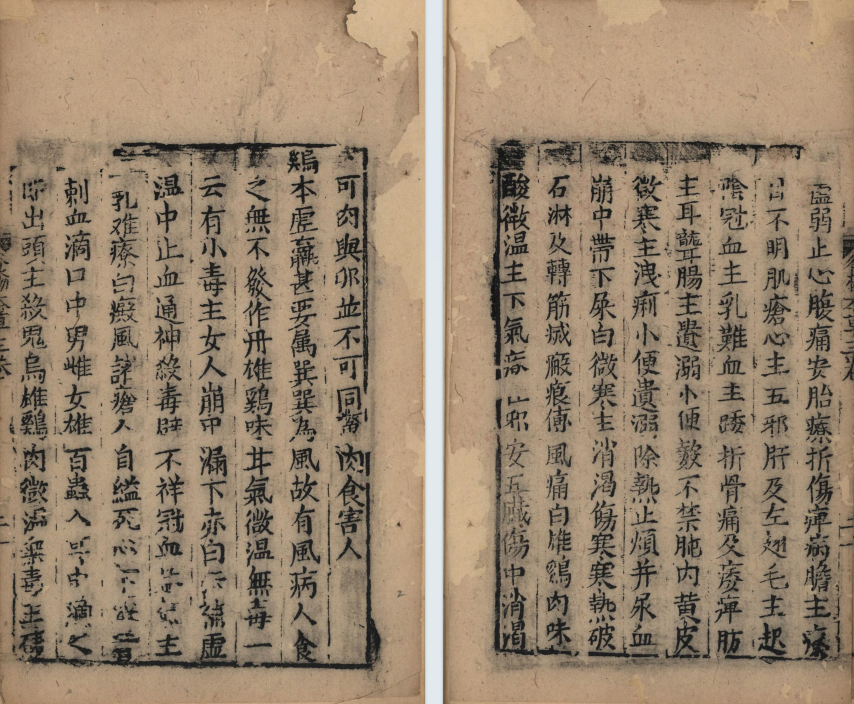 可肉與卵並不可同肉食害人
雞本虛羸甚要屬巽巽為風故有風病人食
之無不發作丹雄雞味甘氣微溫無毒一
云有小毒主女人崩中漏下赤白補虛
溫中止血通神殺毒辟不祥冠血主
乳难療白癜風諸瘡人自縊死心下
刺血滴口中男雌女雄百蟲入耳中滴之
即出頭主殺鬼烏雄雞肉微溫無毒主補
虛弱止心腹痛安胎療折傷痺病膽主療
目不明肌瘡心主五邪肝及左翅毛主起
陰冠血主乳難血主踒折骨痛及痿痺肪
主耳聾腸主遺溺小便數不禁肫內黃皮
微寒主洩痢小便遺溺除熱止煩并尿血
崩中帶下屎白微寒主消渴傷寒寒熱破
石淋及轉筋滅瘢痕傅風痛白雄雞肉味
酸微溫主下氣狂邪安五臟傷中消渴